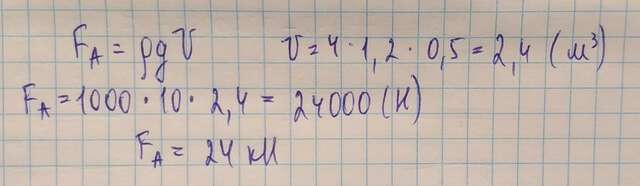 F_A = ρgV V = 4 · 1,2 · 0,5 = 2,4 (м³)
F_A = 1000 · 10 · 2,4 = 24000 (Н)
F_A = 24 кН